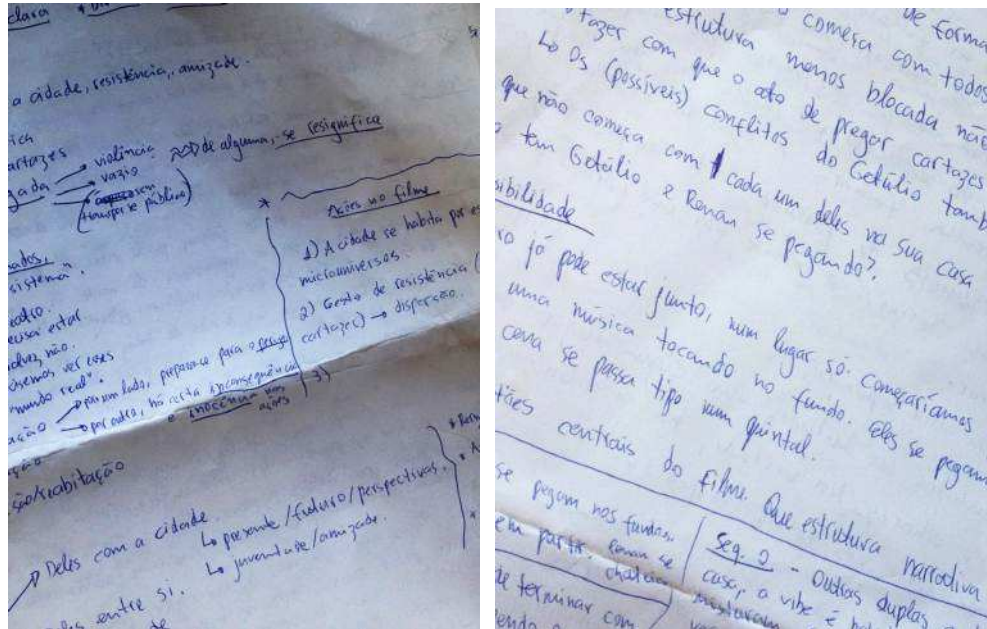 clara
a cidade, resistência, amizade.
ica
artazes
gada → violência
→ vazio
(sem transporte público)
de alguma, se resignifica
* Ações no filme
1) A cidade se habita por es
microuniversos.
2) Gesto de resistência (
cartazes) → dispersão.
3)
nados,
sistema".
eatro.
ecisa estar
talvez não.
"mundo real".
ação → por um lado, prepara-se para o
→ por outro, há certa inconsequência
e inocência nas
ações
ção/reabitação
Deles com a cidade.
↳ presente/futuro/perspectivas.
↳ juventude/amizade.
entre si.
de forma
começa com todos
estrutura menos blocada não
fazer com que o ato de pregar cartazes
↳ Os (possíveis) conflitos do Getúlio tamb
que não começa com 1 cada um deles na sua casa
tem Getúlio e Renan se pegando?
sibilidade
ro já pode estar junto, num lugar só. Começaríamos
uma música tocando no fundo. Eles se pegam
cena se passa tipo num quintal.
centrais do filme. Que estrutura narrativa
se pegam nos fundos
em partir. Renan se
chateia
de terminar com
Seq. 2 - Outras duplas
casa, a vibe é
misturam